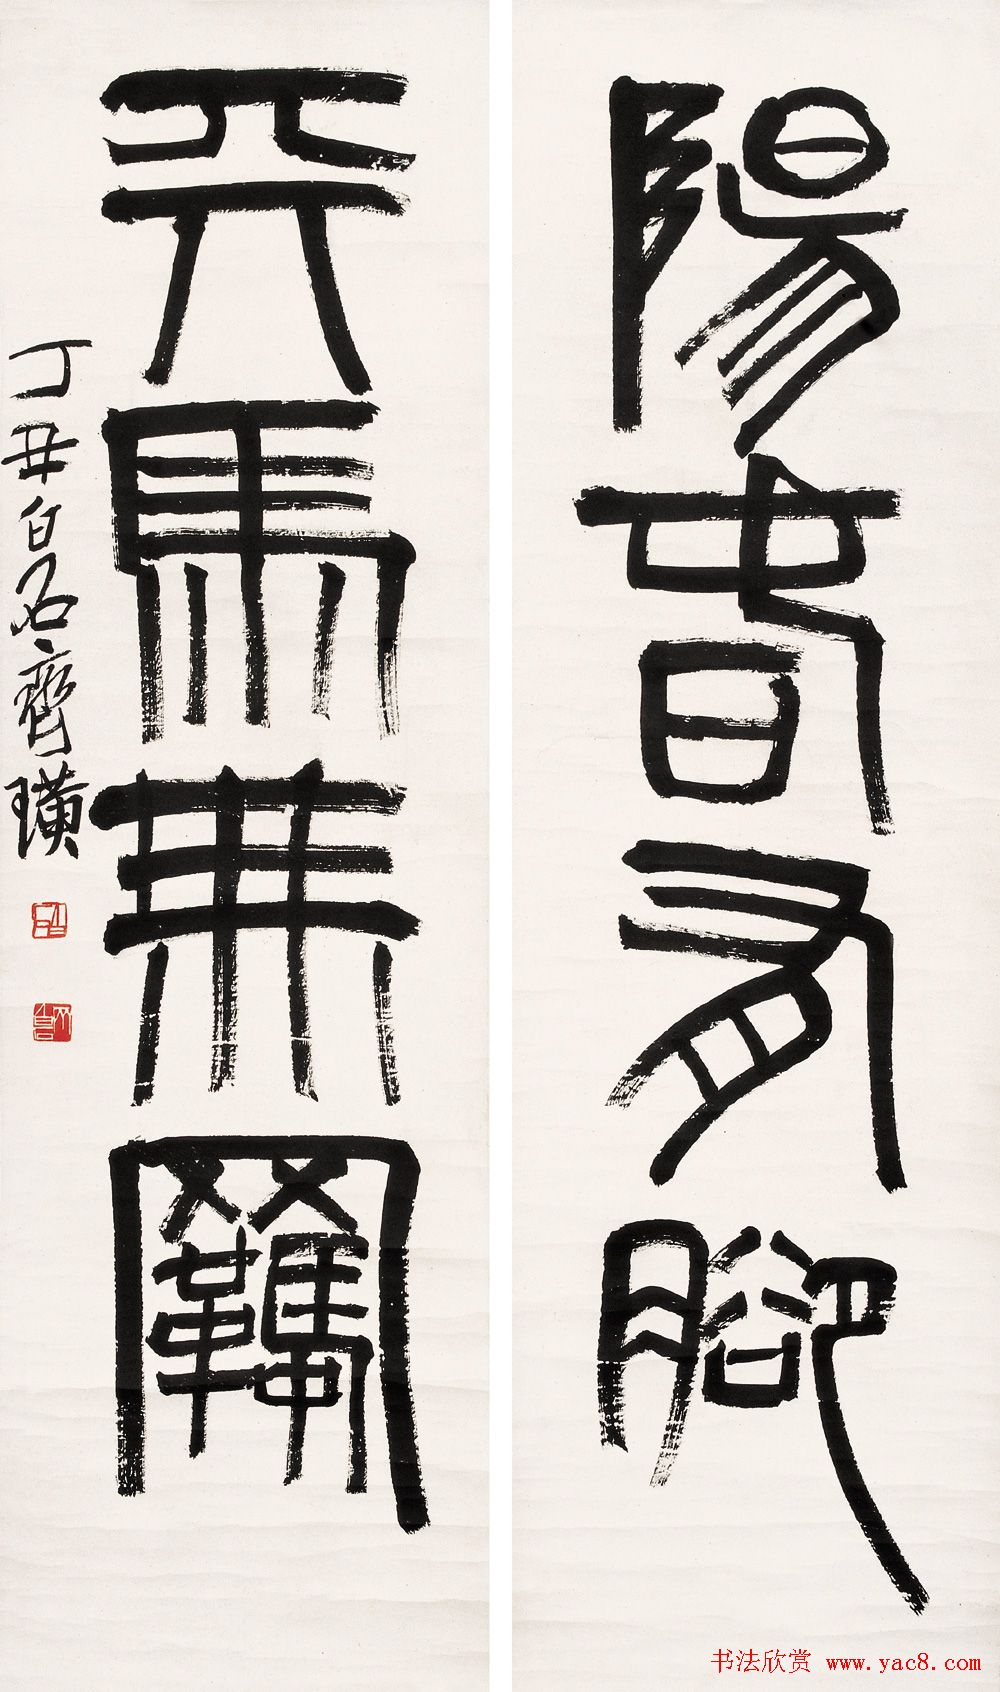 陽春有腳
天馬無羈
丁丑白石齊璜
书法欣赏 www.yac8.com